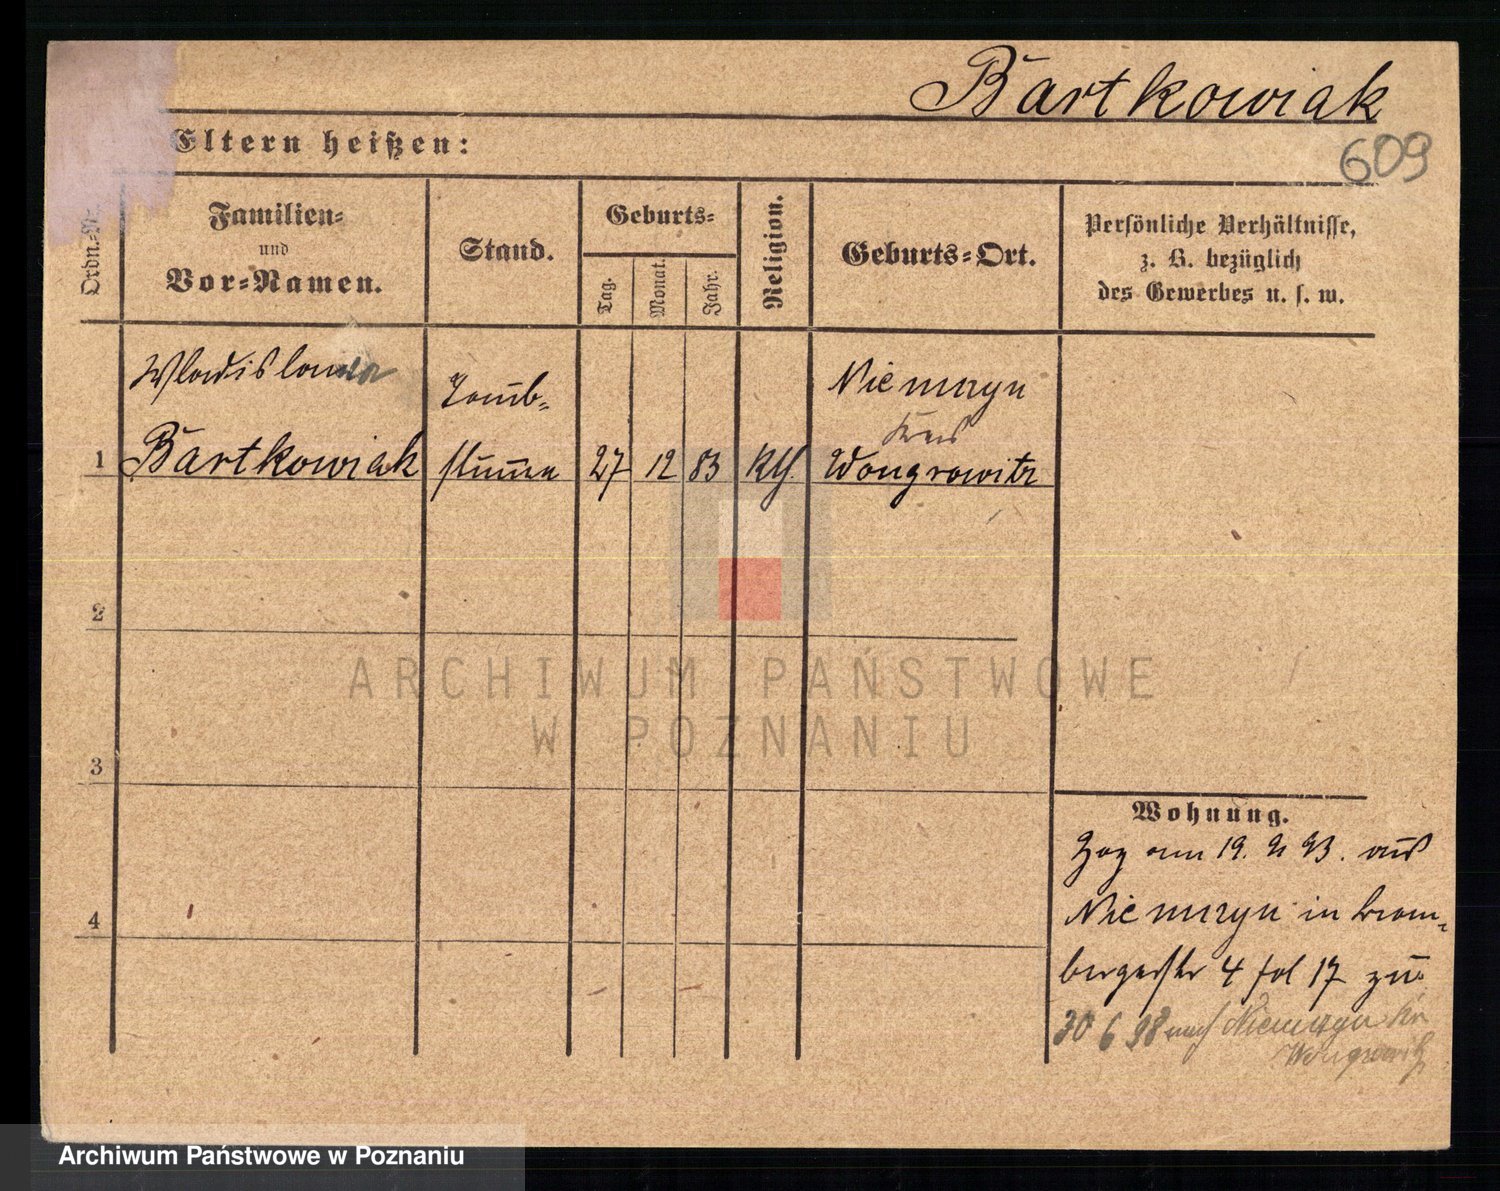 Bartkowiak
609
Eltern heißen:
Ordn.-Nr.
Familien-
und
Vor-Namen.
Stand.
Geburts-
Tag.
Monat.
Jahr.
Religion.
Geburts-Ort.
Persönliche Verhältnisse,
z. B. bezüglich
des Gewerbes u. s. w.
Wladislawa
Bartkowiak
Taub-
stumm
27
12
83
Kth.
Niemczyn
Kreis
Wongrowitz
1
2
3
4
ARCHIWUM PAŃSTWOWE
W POZNANIU
Wohnung.
Zog am 19. 9 93. aus
Niemczyn in Brom-
bergerstr 4 fol 17 zu.
30 6 98 nach Niemczyn Kr
Wongrowitz
Archiwum Państwowe w Poznaniu